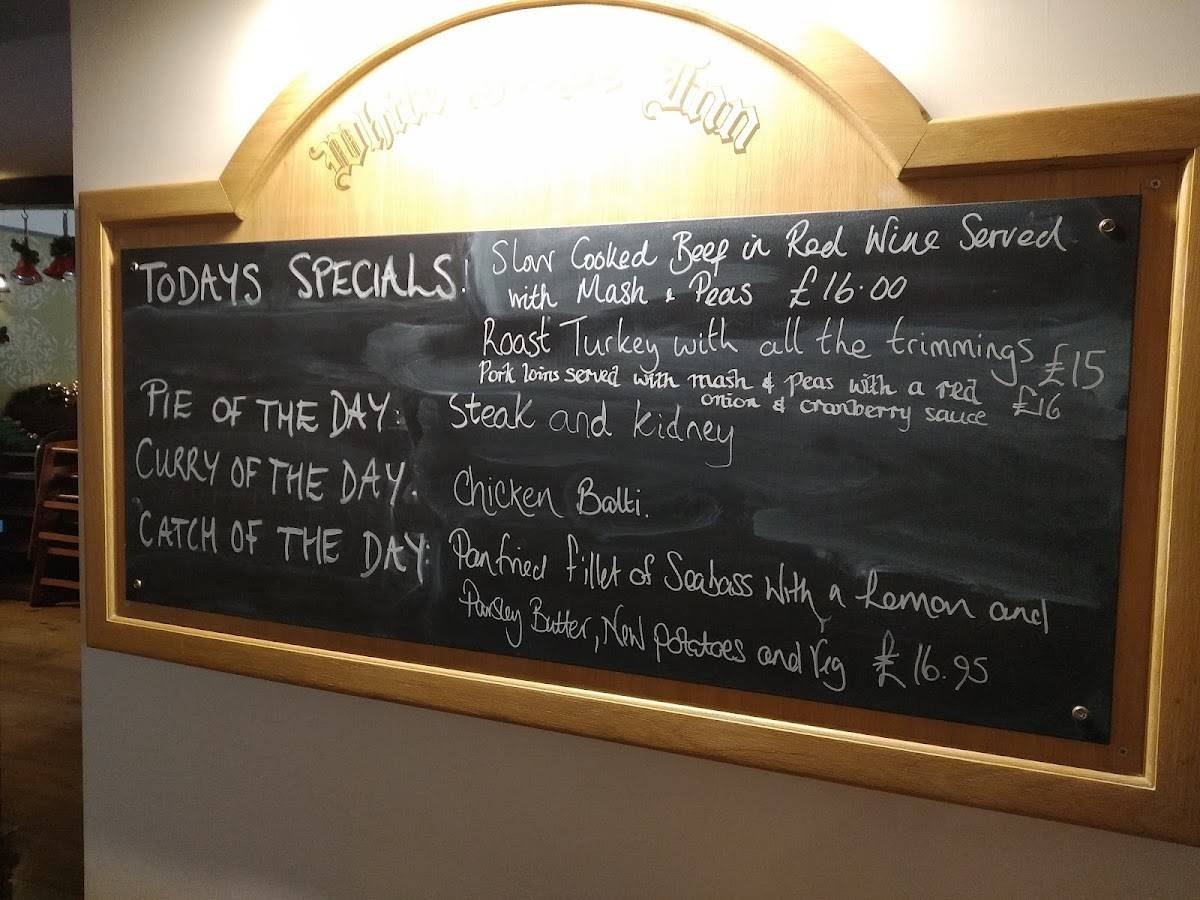 White Inn
TODAYS SPECIALS!
Slow Cooked Beef in Red Wine Served
with Mash & Peas £16.00
Roast Turkey with all the trimmings £15
Pork loins served with mash & peas with a red
onion & cranberry sauce £16
PIE OF THE DAY:
Steak and kidney
CURRY OF THE DAY.
Chicken Balti.
CATCH OF THE DAY:
Panfried fillet of Seabass with a Lemon and
Parsley Butter, New potatoes and Veg £16.95